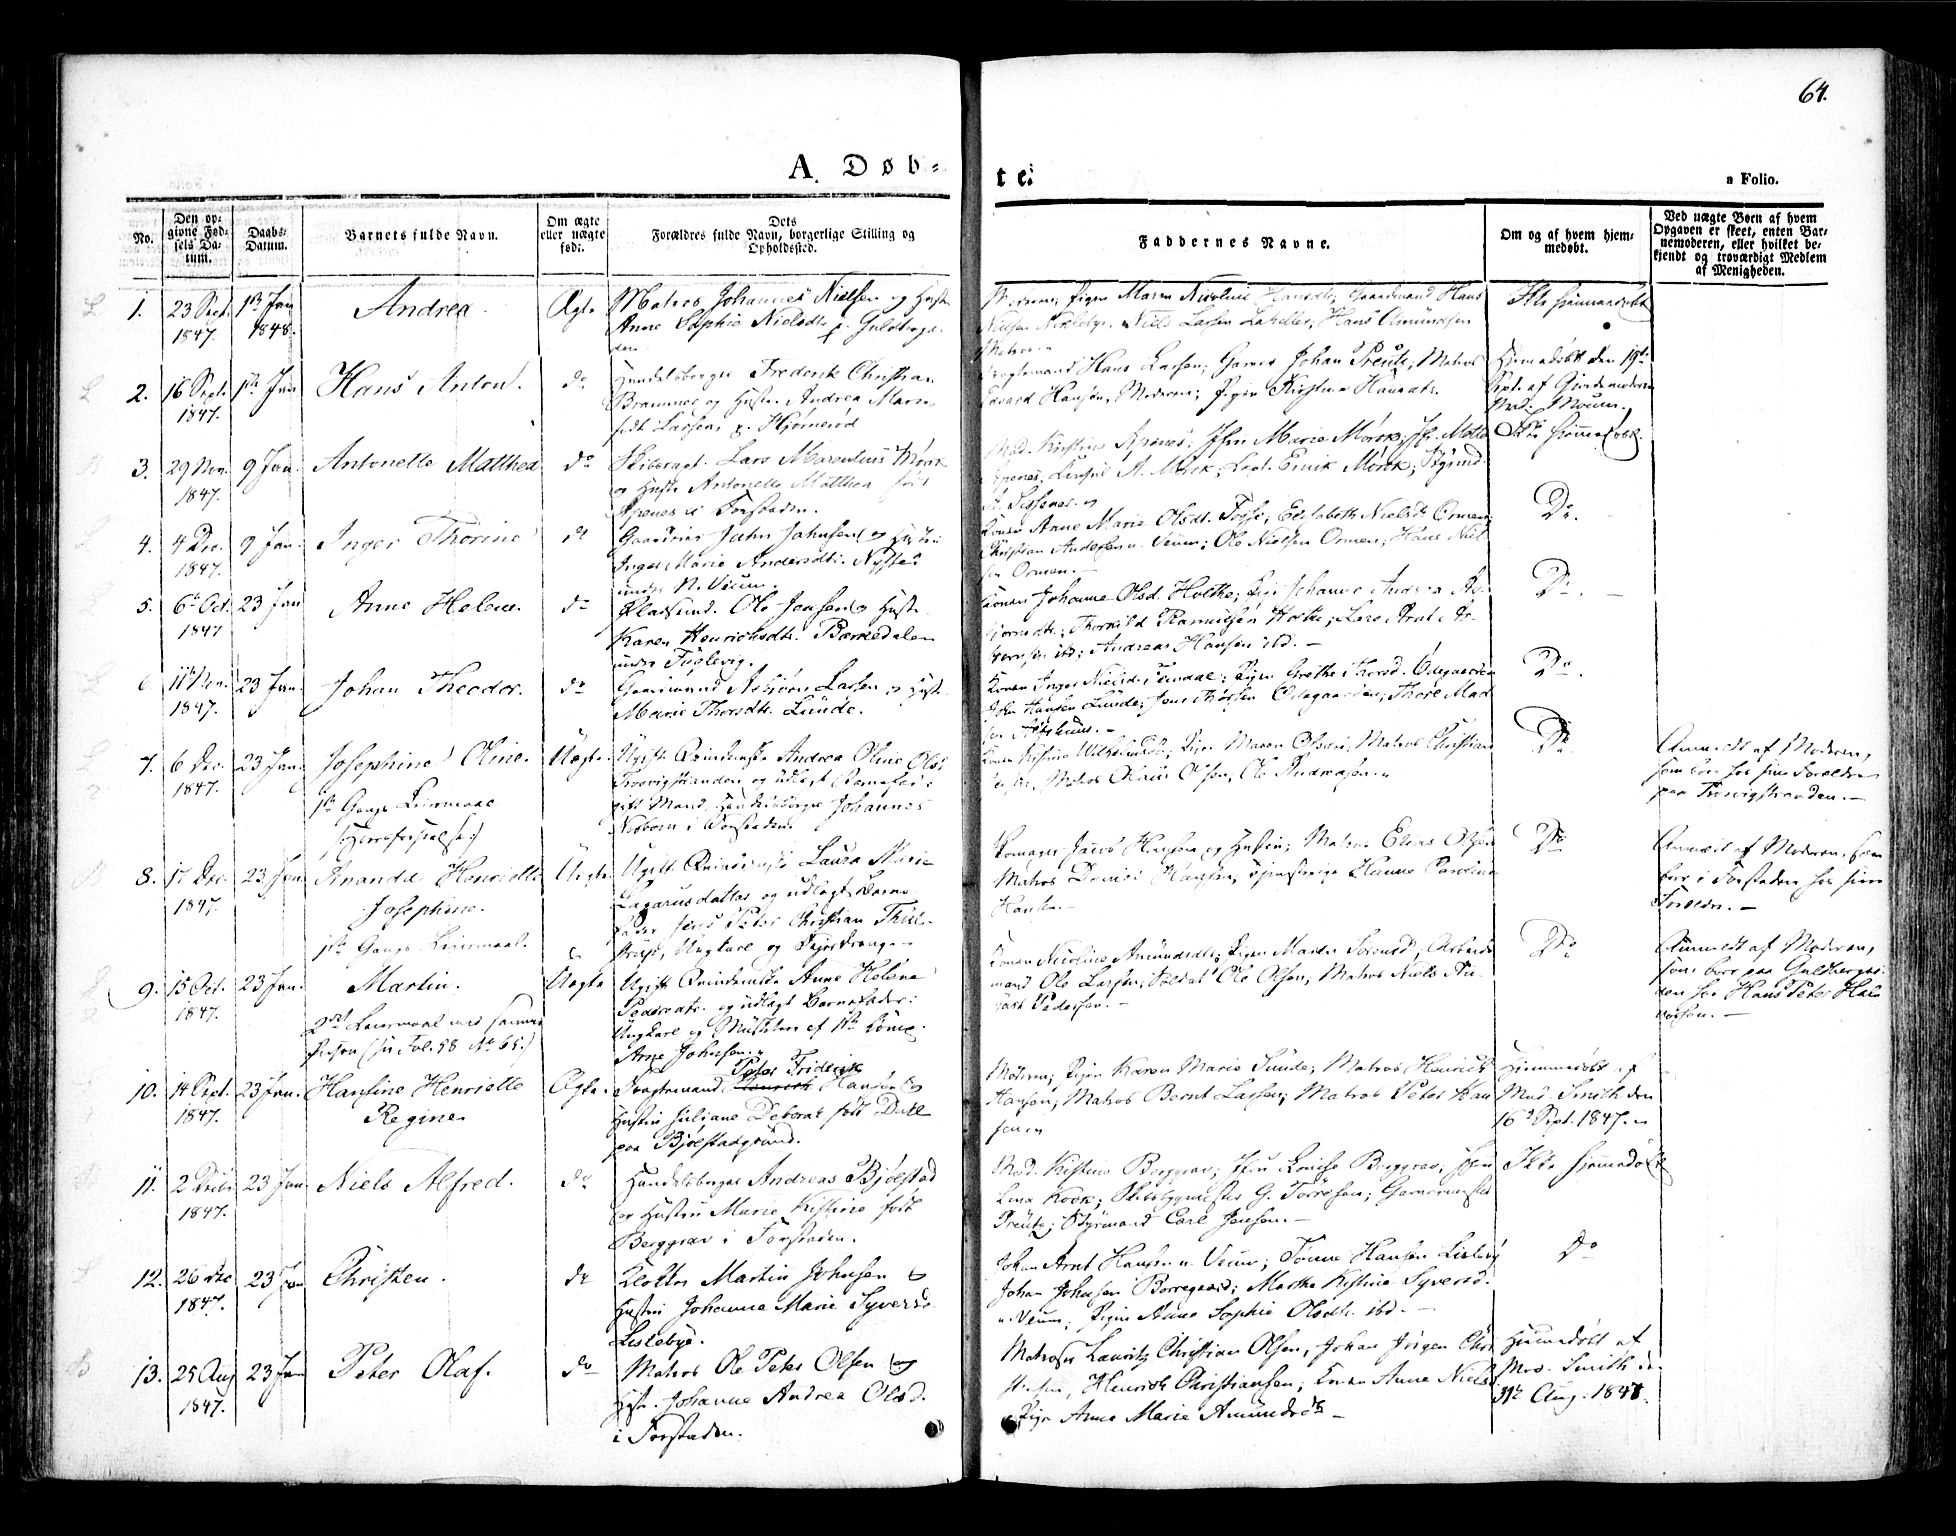 64.
A. Døb-
te:
a Folio.
No.
Den op-
givne Fød-
sels Da-
tum.
Daabs-
Datum.
Barnets fulde Navn.
Om ægte
eller uægte
født.
Dets
Forældres fulde Navn, borgerlige Stilling og
Opholdssted.
Faddernes Navne.
Om og af hvem hjem-
medøbt.
Ved uægte Børn af hvem
Opgaven er skeet, enten Bar-
nemoderen, eller hvilket be-
kjendt og troværdigt Medlem
af Menigheden.
1. 23 Sept. 1847. 1st Jan 1848. Andrea Ægte
Matros Johannes Nielsen og Hustr
Anne Sophie Nielsdtr p. Guldbergs
den
Moderen; Pigen Maren Nicoline Hansdtr; Gaardmand Hans
Nielsen; Niels Larsen Lahelle; Hans Amundsen
Matros.
Ikke hjemmedøbt
2. 16 Sept. 1847. 1st Jan Hans Anton. do
Handelsborger Frederik Christian
Brammer og Hustr. Andrea Marie
født Larsen; p. Hjørnerød
Hans Larsen; Garver Johan Preutz; Matros
Edvard Hansen, Moderen; Pigen Kirstine Hansdtr.
Hjemmedøbt den 19de
Sept. af Gjordemoderen
Mad. Moum.
3. 29 Nov. 1847. 9 Jan. Antonette Matthea do
Skibscapt. Lars Marentius Mørk
og Hustr Antonette Matthea født
Apenes i Forstaden.
Mad. Kirstine Apenes; Jfru Marie Mørck; Mette
Apenes, Consul A. Mørck; Capt. Emik Mørck; Styrmd.
A.
Ikke hjemmedøbt.
4. 4 Dec. 1847. 9 Jan. Inger Thorine do
Gaardbr. John Johnsen og Hustr:
Inger Marie Andersdtr.
under N. Veum.
Konen Anne Marie Olsdt. Fosse; Elisabeth Nielsd Ormen;
Christian Andersen n. Veum; Ole Nielsen Ormen; Hans Niel
sen Ormen.
Do.
5. 6te Oct. 1847 23 Jan Anne Helene. do
Pladsmd. Ole Jensen og Hustr.
Karen Henrichsdtr. Bakkedalen
under Fuglevig.
Konen Johanne Olsd. Holthe; Johanne Andrea
Thorvild Rasmussen Holthe; Lars
ibd; Andreas Hansen ibd.
Do.
6 11te Nov. 1847. 23 Jan. Johan Theodor. do
Gaardmand Asbjørn Larsen og Hustr.
Marie Thorsdtr. Lunde.
Konen Inger Nielsd. Pigen Grethe Thorsd. Ødegaarden
John Hansen Lunde; Jens Thorsen Ødegaarden; Thore Mad
sen
Do.
7. 6 Dec. 1847. 23 Jan. Josephine Oline. Uægte
1ste Gangs Leiermaal
Ugift Qvindemske Andrea Oline Olsd
Trosvigstranden og udlagt Barnefader:
gift Mand, Handelsborger Johannes
i Forstaden.
Konen Kirstine Wilhelmsd; Pigen Maren Olsdtr, Matros Christian
Matros Olaus Olsen, Ole Andreasen.
Do.
Anmeldt af Moderen,
som boer hos sine Forældre
paa Trosvigstranden.
8. 17 Dec. 1847. 23 Jan. Amanda Henriette
Josephine. Uægte
1ste Gangs Leiermaal.
Ugift Qvindemske Laura Marie
Lazarusdatter og udlagt Barne
fader Jens Peter Christian
Ungkarl og
Jacob Hansen og Hustru; Matros Elias Olsen
Matros Hansen, Hanne Caroline
Hansen.
Do
Anmeldt af Moderen, som
boer i Forstaden hos sine
Forældre.
9. 15 Oct. 1847. 23 Jan. Martin. Uægte
2det Leiermaal med samme
Person (see Fol. 58 No 65.)
Ugift Qvindemske Anne Helene
Pedersdtr. og udlagt Barnefader:
Ungkarl og Musketeer af 1ste Comp.
Arne Johnsen.
Konen Nicoline Amundsdtr; Pigen Marthe Sørensd; Arbeids
mand Ole Larsen; Soldat Ole Olsen; Matros Niels An
Pedersen.
Do
Anmeldt af Moderen,
som boer paa Guldbergs
den hos Hans Peter Hal
vorsen.
10. 14 Sept. 1847. 23 Jan. Hansine Henriette
Regine Ægte.
Peter Friderik
Fragtemand Henrich Hansen og
Hustru Juliane Debora født Dahl
paa Bjølstadgrund.
Moderen; Pigen Karen Marie Lunde; Matros Henrich
Hansen; Matros Bernt Larsen; Matros Peter Han
sen
Hjemmedøbt af
Mad. Smith den
16de Sept. 1847.
11. 2 Decbr 1847. 23 Jan Niels Alfred. do
Handelsborger Andreas Bjølstad
og Hustru Marie Kistine født
Berggrav i Forstaden.
Mad. Kistine Berggrav; Jfru Lovise Berggrav; Jfru
Lena Kook; Skibsbygmester G. Torresen; Garvermester
Preutz; Styrmand Carl Jensen.
Ikke hjemmedøbt
12. 26 Dec 1847. 23 Jan Christen. do
Klokker Martin Johnsen og
Hustru Johanne Marie Syvers
Lislebye.
Johan Arnt Hansen n. Veum; Tønne Hansen Lisleby
Johan Johnsen Borregaard; Marthe Kistine Syversd.
n. Veum; Pigen Anne Sophie Olsdtr. ibd.
Do
13. 25 Aug 1847. 23 Jan Peter Olaf. do
Matros Ole Peter Olsen og
Hustr. Johanne Andrea Olsd.
i Forstaden.
Matroser Lauritz Christian Olsen, Johan Jørgen Chri
stensen, Henrich Christiansen; Konen Anne Nielsd
Pige Anne Marie Amundsdtr
Hjemmedøbt af
Mad. Smith den
31te Aug. 1847.